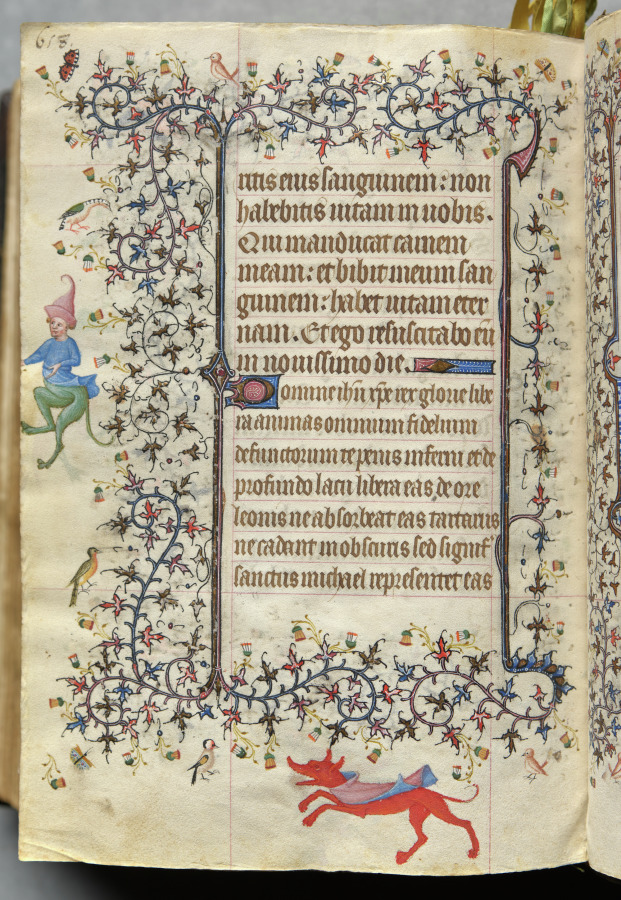 618.
nitis eius sanguinem: non
habebitis uitam in uobis.
Qui manducat carnem
meam: et bibit meum san
guinem: habet uitam eter
nam. Et ego resuscitabo eū
in nouissimo die.
Domine ihū xp̄e rex glorie libe
ra animas omnium fidelium
defunctorum te penis inferni et de
profundo lacu libera eas de ore
leonis ne absorbeat eas tartarus
ne cadant in obscuris sed signif
sanctus michael representet eas